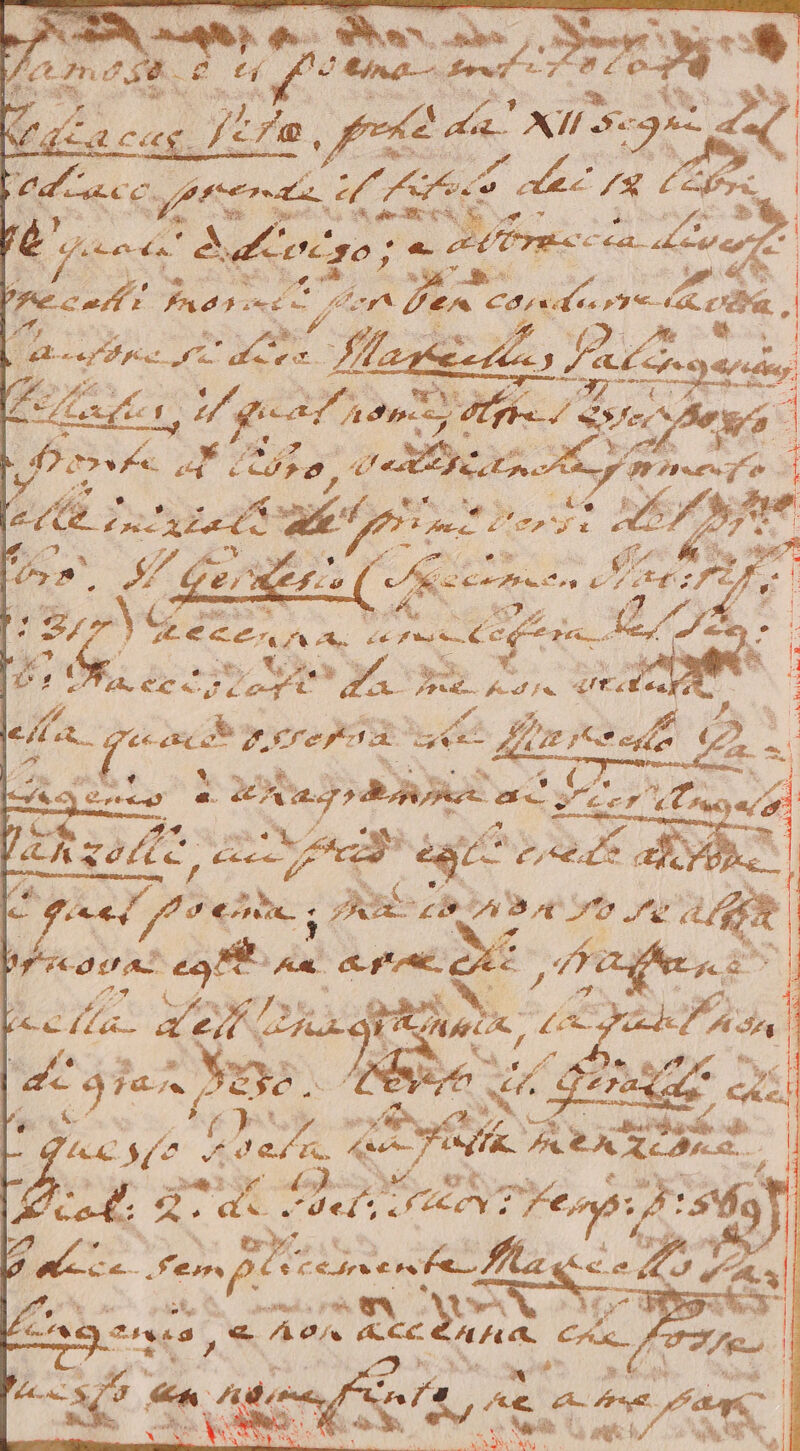 Famoso è il poema intitolato
Zodiacus Vitæ, pchè da' XII segni del
zodiaco prende il titolo dei 12 libri,
ne' quali è diviso; e abbraccia diversi
precetti morali per ben condurre la vita.
L'autore si dice Marcellus Palingenius
Stellatus, il qual nome, oltre l'esser posto
a fronte al libro, vedesi anche formato
dalle iniziali de' primi versi del pr:mo
libro. Il Gerdesio (Specimen Ital: rif:
p: 317) accenna una lettera del Sig:
Ab: Facciolati da me non veduta,
nella quale osserva che Marcello Pa=
lingenio è anagramma di Pier Angelo
Manzolli, cui pciò egli crede autore
di quel poema; mà io non so se altra
pruova egli ne arrechi, trattane
quella dell'anagramma, la qual non
è di gran peso. Certo il Giraldi, che
di questo Poeta ha fatta menzione,
(Dial: 2. de Poet: suor: temp: p: 569)
lo dice semplicemente Marcello Pa=
lingenio, e non accenna che fosse
questo un nome finto, nè a me par